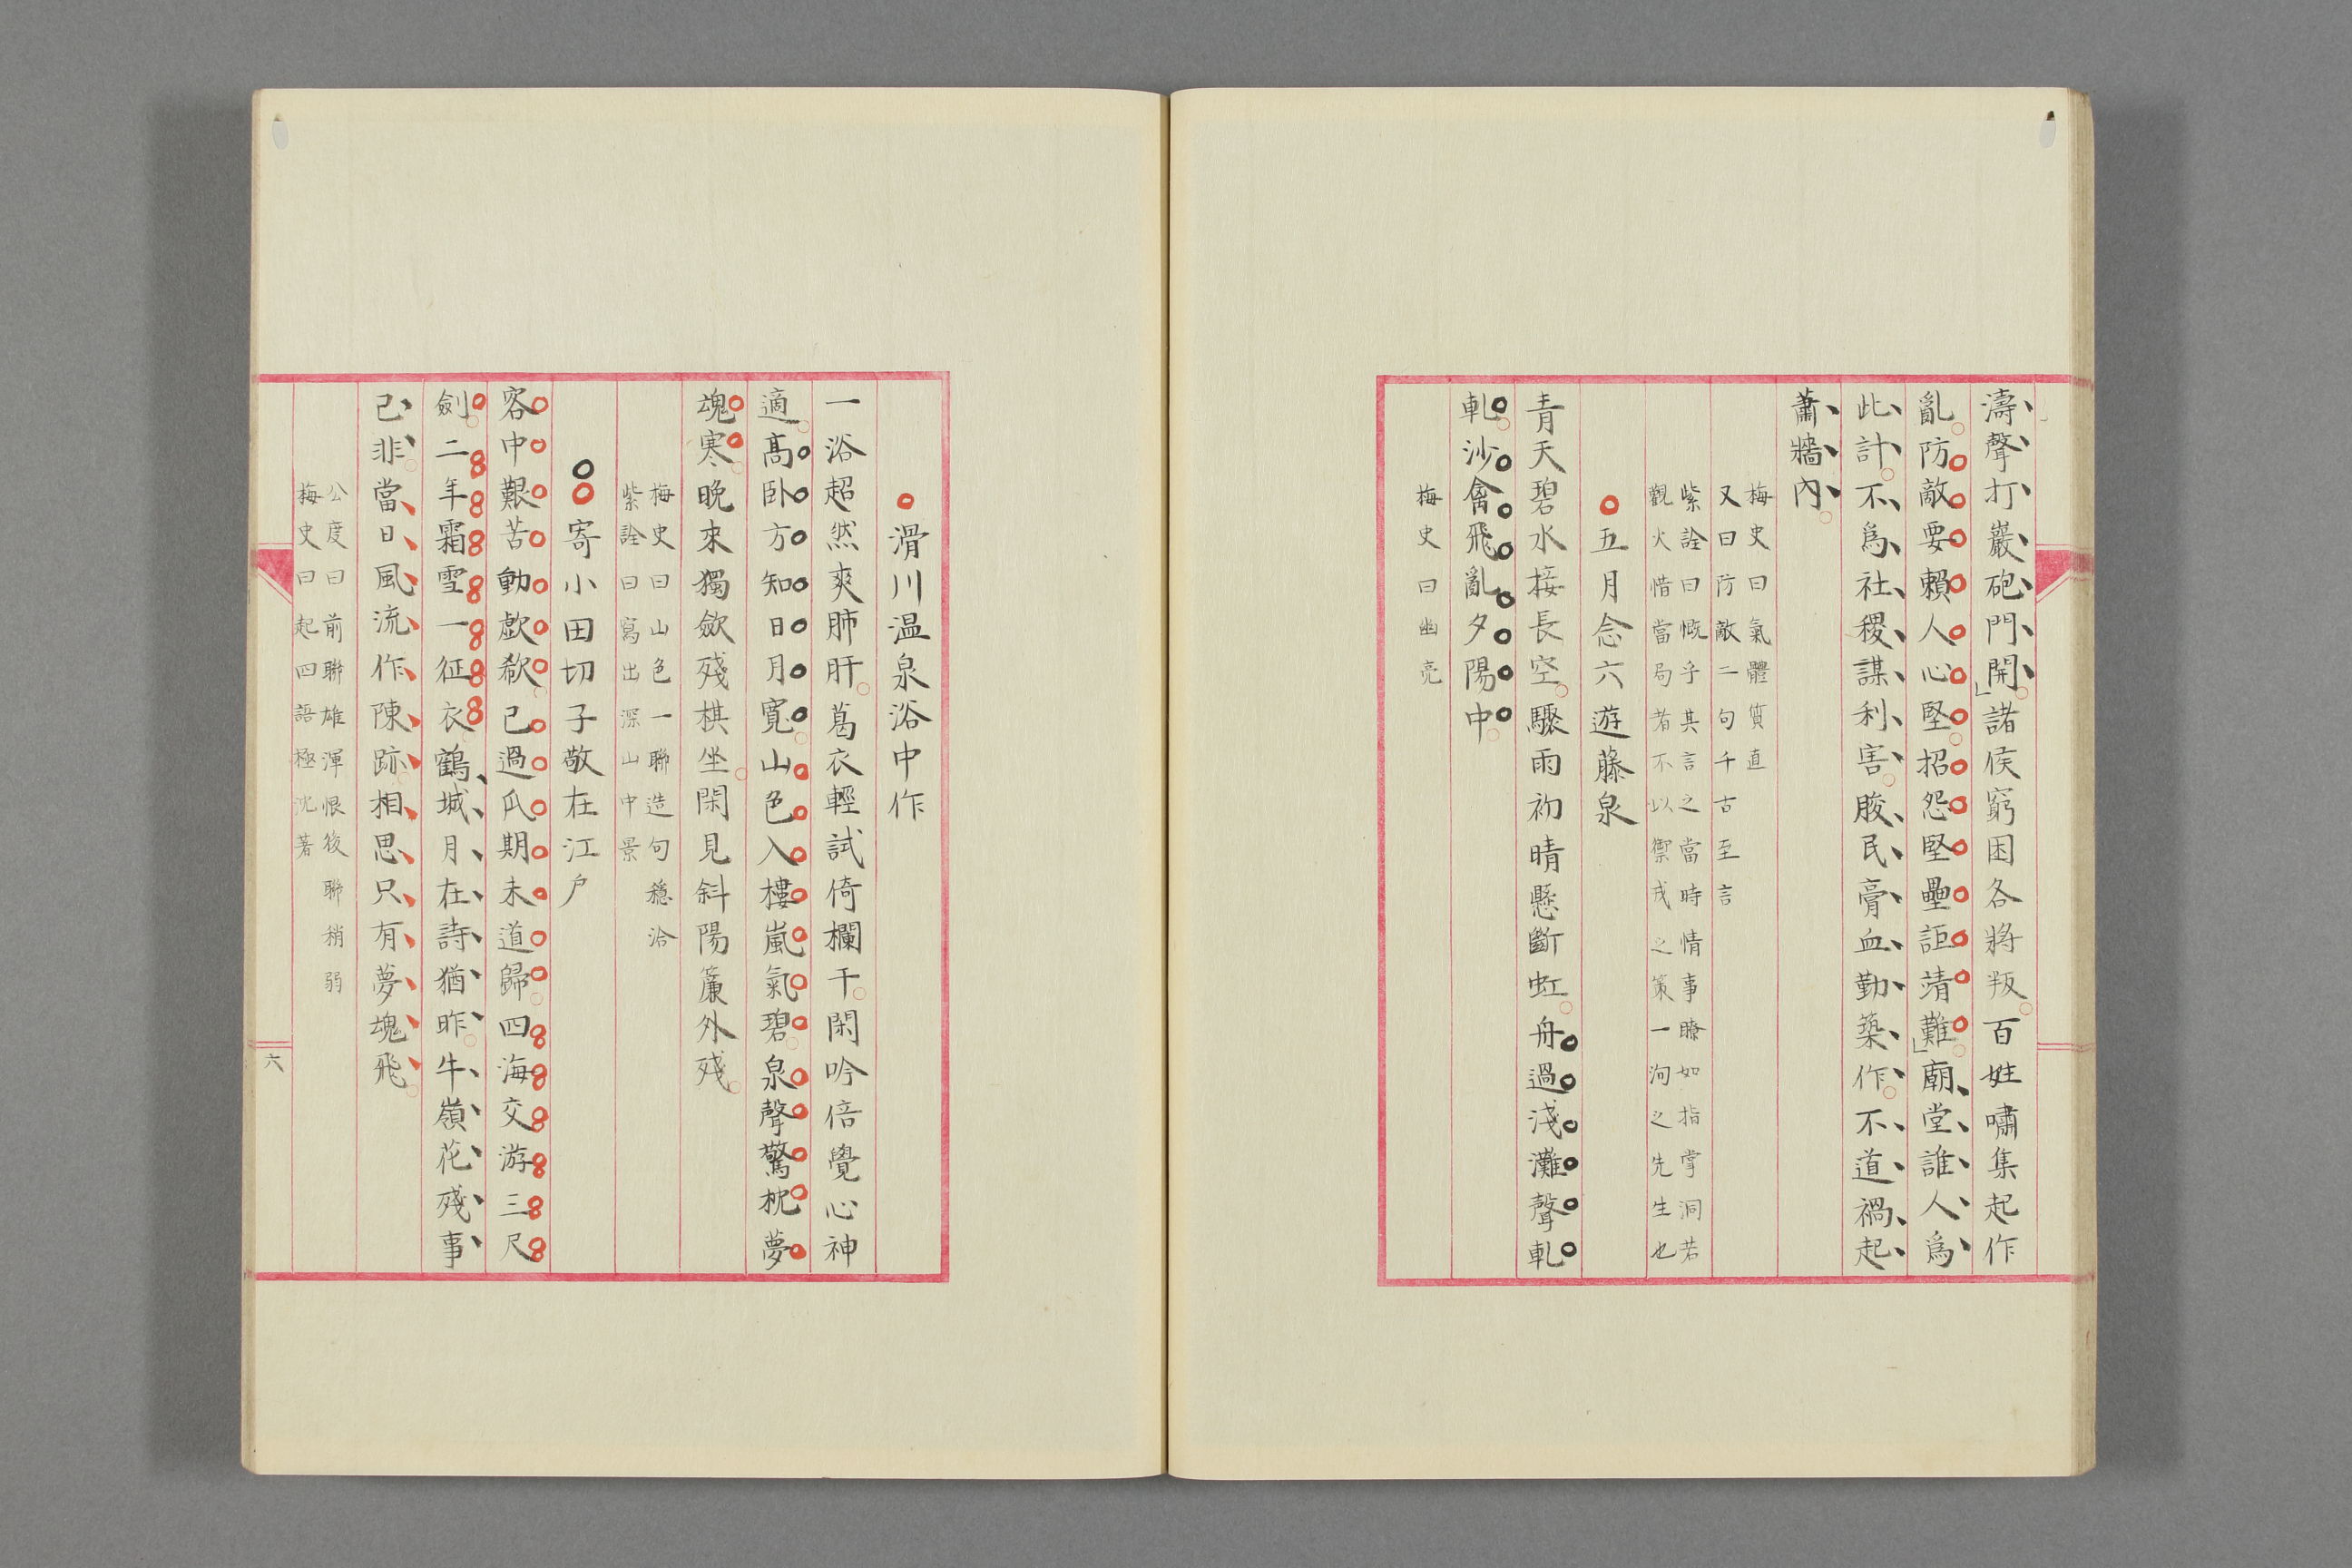 濤聲打巖砲門開」諸侯窮困各將叛百姓嘯集起作
亂防敵要賴人心堅招怨堅壘詎靖難」廟堂誰人爲
此計不爲社稷謀利害朘民膏血勤築作不道禍起
蕭牆內
梅史曰氣體質直
又曰防敵二句千古至言
紫詮曰慨乎其言之當時情事瞭如指掌洞若
觀火惜當局者不以禦戎之策一洵之先生也
五月念六遊藤泉
青天碧水接長空驟雨初晴懸斷虹舟過淺灘聲軋
軋沙禽飛亂夕陽中
梅史曰幽亮
滑川温泉浴中作
一浴超然爽肺肝葛衣輕試倚欄干閑吟倍覺心神
適高卧方知日月寬山色入樓嵐氣碧泉聲驚枕夢
魂寒晚來獨斂殘棋坐閑見斜陽簾外殘
梅史曰山色一聯造句穩洽
紫詮曰寫出深山中景
寄小田切子敬在江戶
客中艱苦動歔欷已過瓜期未道歸四海交游三尺
劍二年霜雪一征衣鶴城月在詩猶昨牛嶺花殘事
已非當日風流作陳跡相思只有夢魂飛
公度曰前聯雄渾恨後聯稍弱
梅史曰起四語極沈著
六